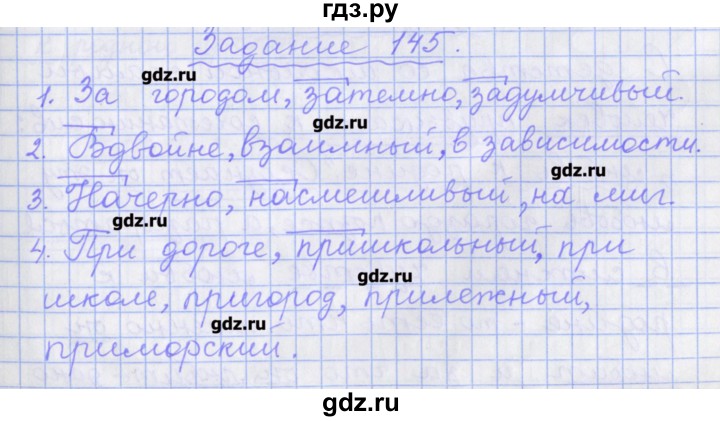 гдз.ру
Задание 145.
gdz.ru
1. За городом, затемно, задумчивый.
gdz.ru
2. Вдвойне, взаимный, в зависимости.
gdz.ru
3. Начерно, насмешливый, на миг.
gdz.ru
4. При дороге, пришкольный, при
gdz.ru
школе, пригород, прилежный,
gdz.ru
приморский.
gdz.ru